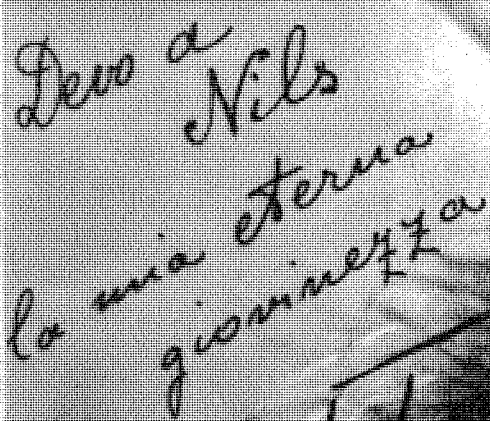 Devo a
Nils
la mia eterna
giovinezza